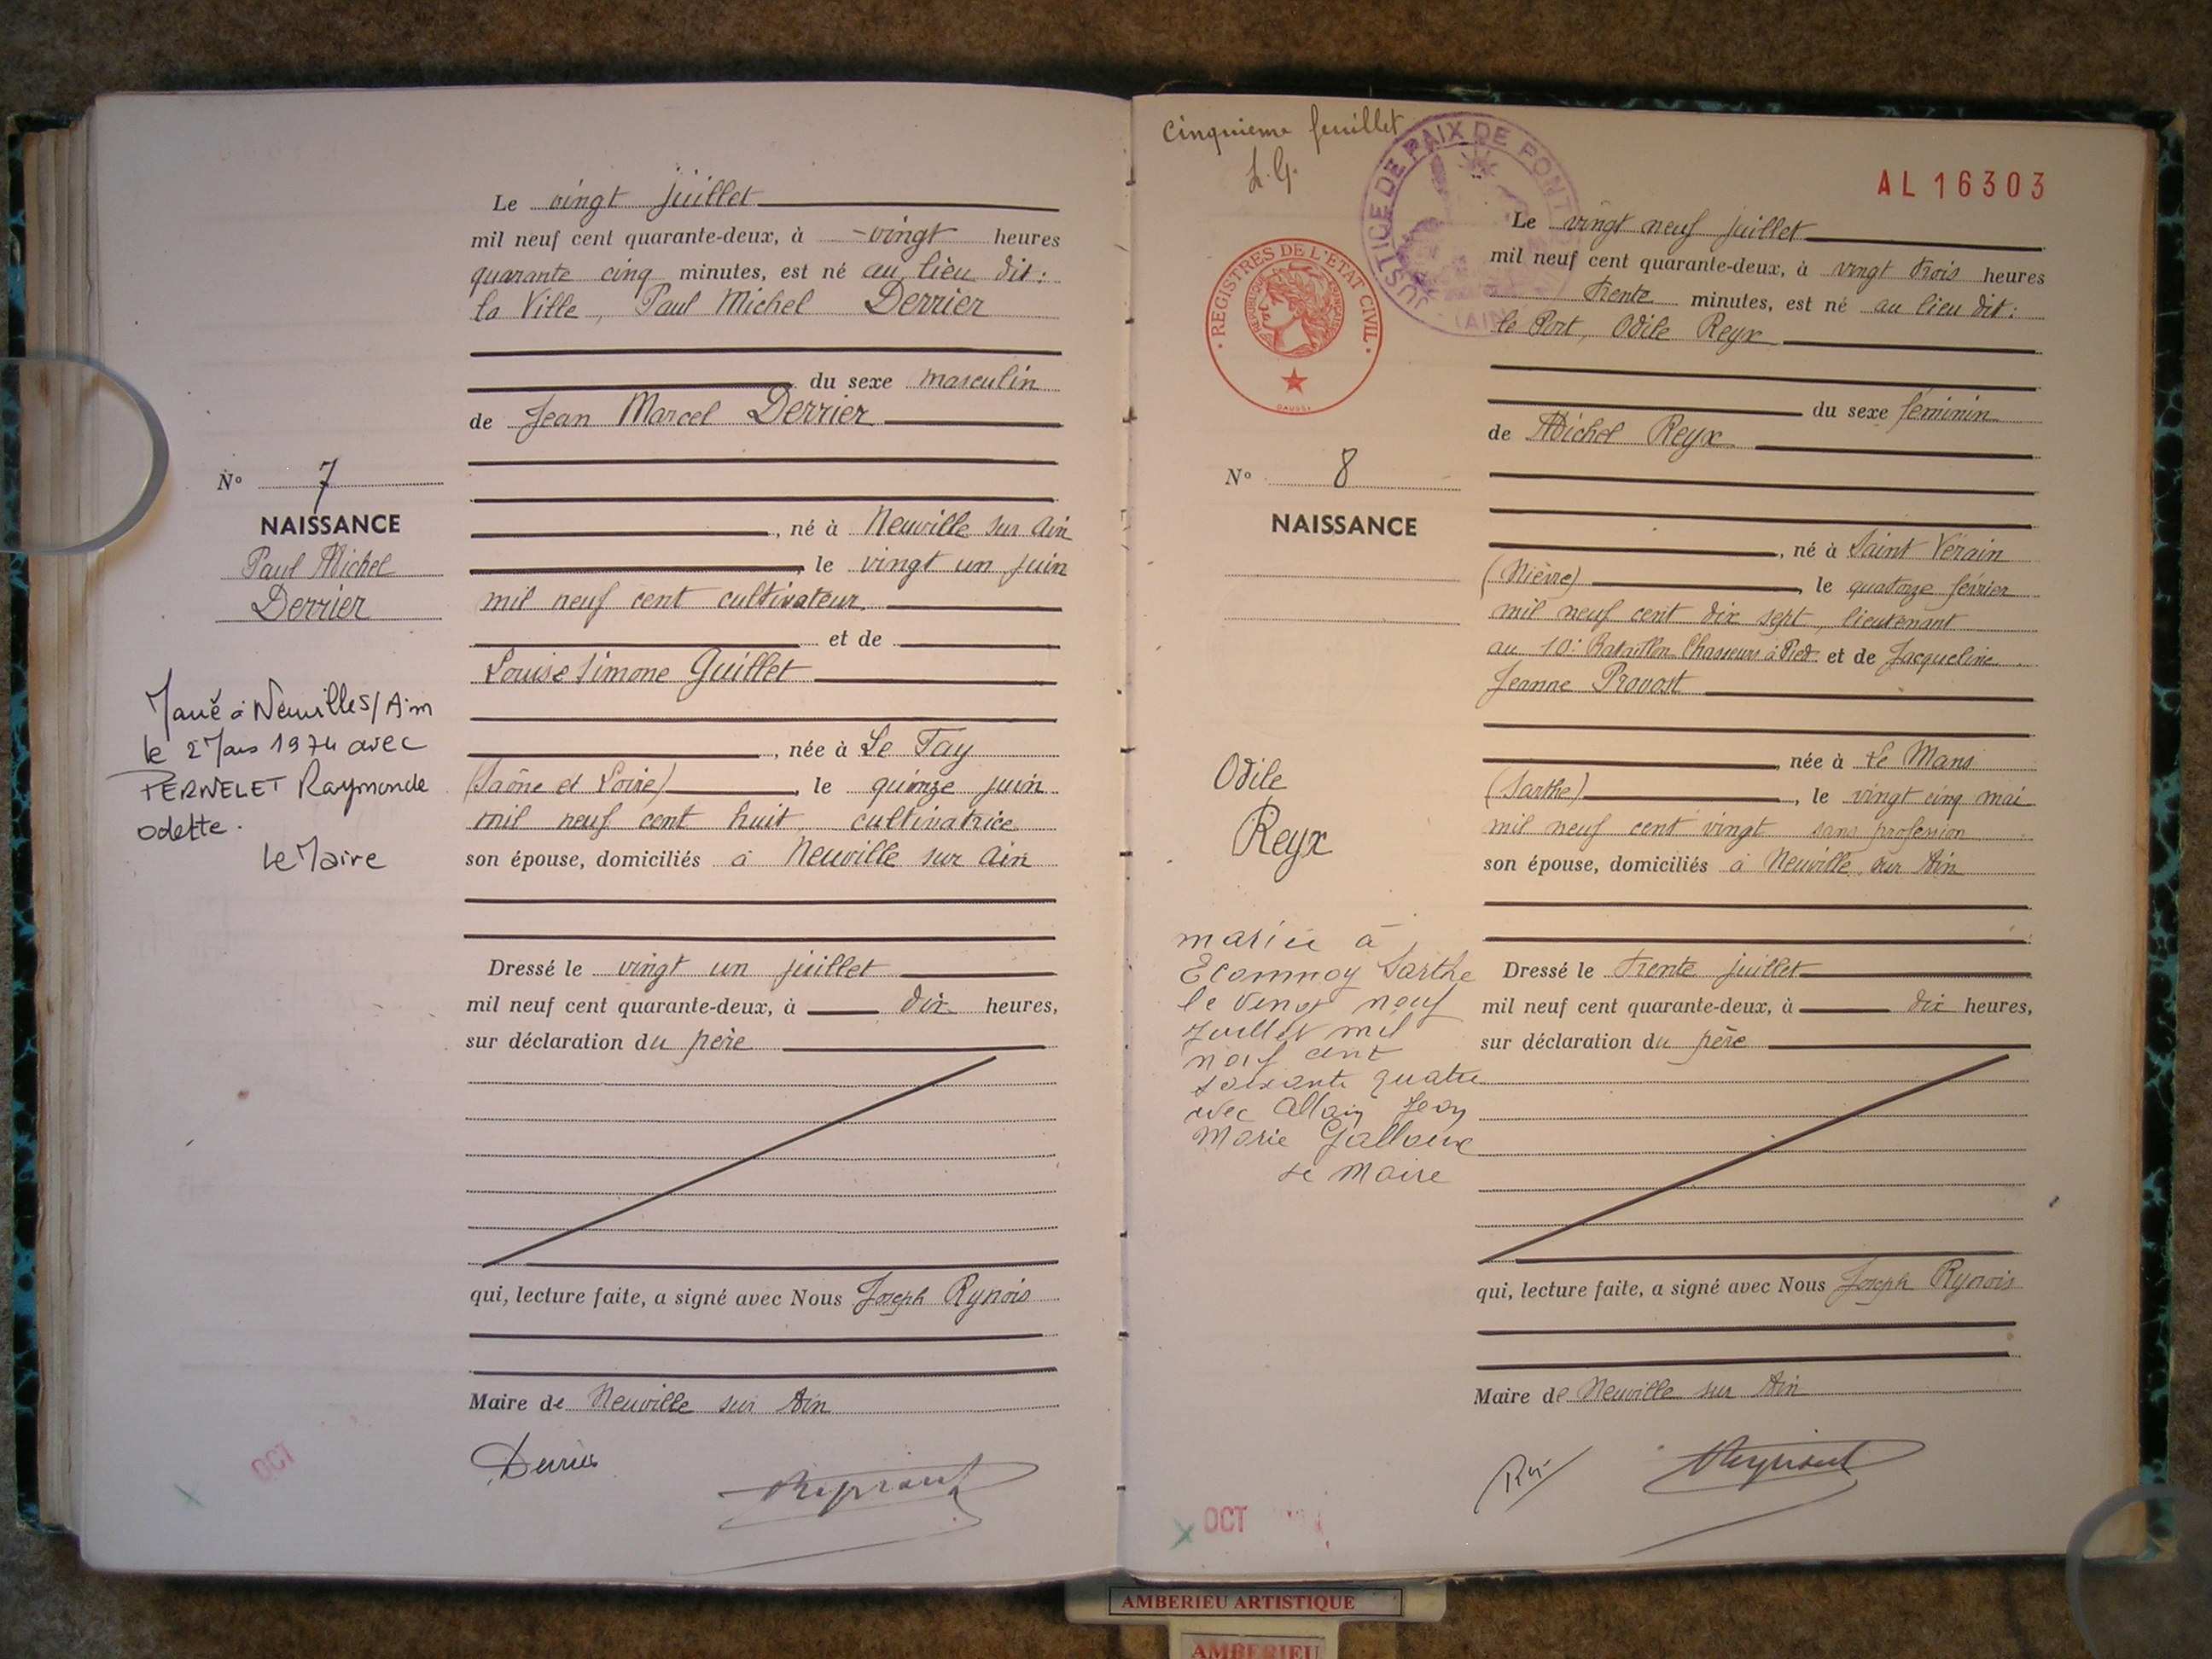 Le vingt juillet
mil neuf cent quarante-deux, à vingt heures
quarante cinq minutes, est né au lieu dit:
la Ville, Paul Michel Derrier
du sexe masculin
de Jean Marcel Derrier
né à Neuville sur Ain
, le vingt un juin
mil neuf cent cultivateur.
et de
Louise Simone Guillet
, née à Le Fay
(Saône et Loire) , le quinze juin
mil neuf cent huit, cultivatrice
son épouse, domiciliés à Neuville sur Ain
Dressé le vingt un juillet
mil neuf cent quarante-deux, à dix heures,
sur déclaration du père
qui, lecture faite, a signé avec Nous Joseph
Maire de Neuville sur Ain
OCT
N° 7
NAISSANCE
Paul Michel
Derrier
Marié à Neuville s/Ain
le 2 Mars 1974 avec
PERNELET Raymonde
odette.
Le Maire
Cinquieme feuillet
L.G.
JUSTICE DE PAIX DE PONT
(AIN)
AL 16303
REGISTRES DE L'ETAT CIVIL
REPUBLIQUE FRANÇAISE
Le vingt neuf juillet
mil neuf cent quarante-deux, à vingt trois heures
trente minutes, est né au lieu dit:
le Port, Odile Reyx
du sexe féminin
de Michel Reyx
, né à Saint Vérain
(Nièvre) , le quatorze février
mil neuf cent dix sept, lieutenant
au 10e Bataillon Chasseurs à Pied et de Jacqueline
Jeanne Provost
née à Le Mans
(Sarthe) , le vingt cinq mai
mil neuf cent vingt sans profession
son épouse, domiciliés à Neuville sur Ain
Dressé le trente juillet
mil neuf cent quarante-deux, à dix heures,
sur déclaration du père
qui, lecture faite, a signé avec Nous Joseph
Maire de Neuville sur Ain
N° 8
NAISSANCE
Odile
Reyx
mariée à
Ecommoy Sarthe
le vingt neuf
Juillet mil
neuf cent
soixante quatre
avec Allain Jean
Marie Galloux
Le Maire
OCT
AMBERIEU ARTISTIQUE
AMBERIEU